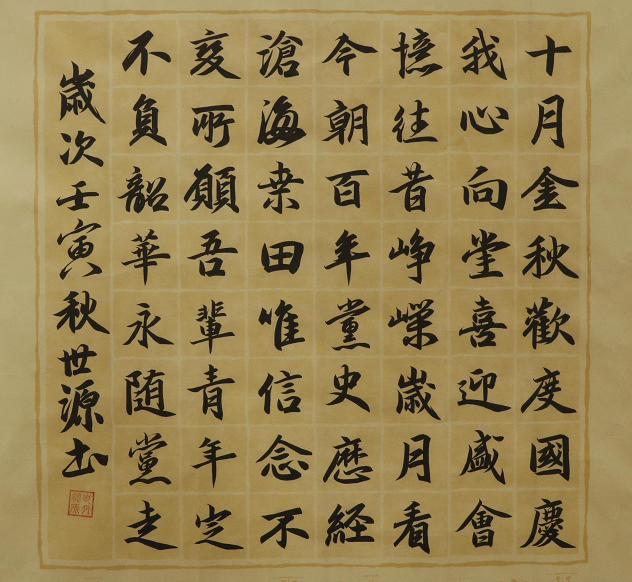 十月金秋歡度國慶
我心向堂喜迎盛會
憶往昔崢嶸歲月看
今朝百年黨史歷經
滄海桑田唯信念不
変所願吾輩青年定
不負韶華永随黨走
歲次壬寅秋世源书